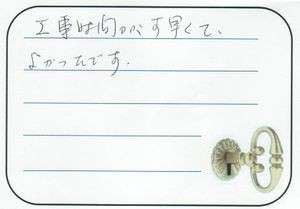 工事時間が、す早くて、
よかったです.